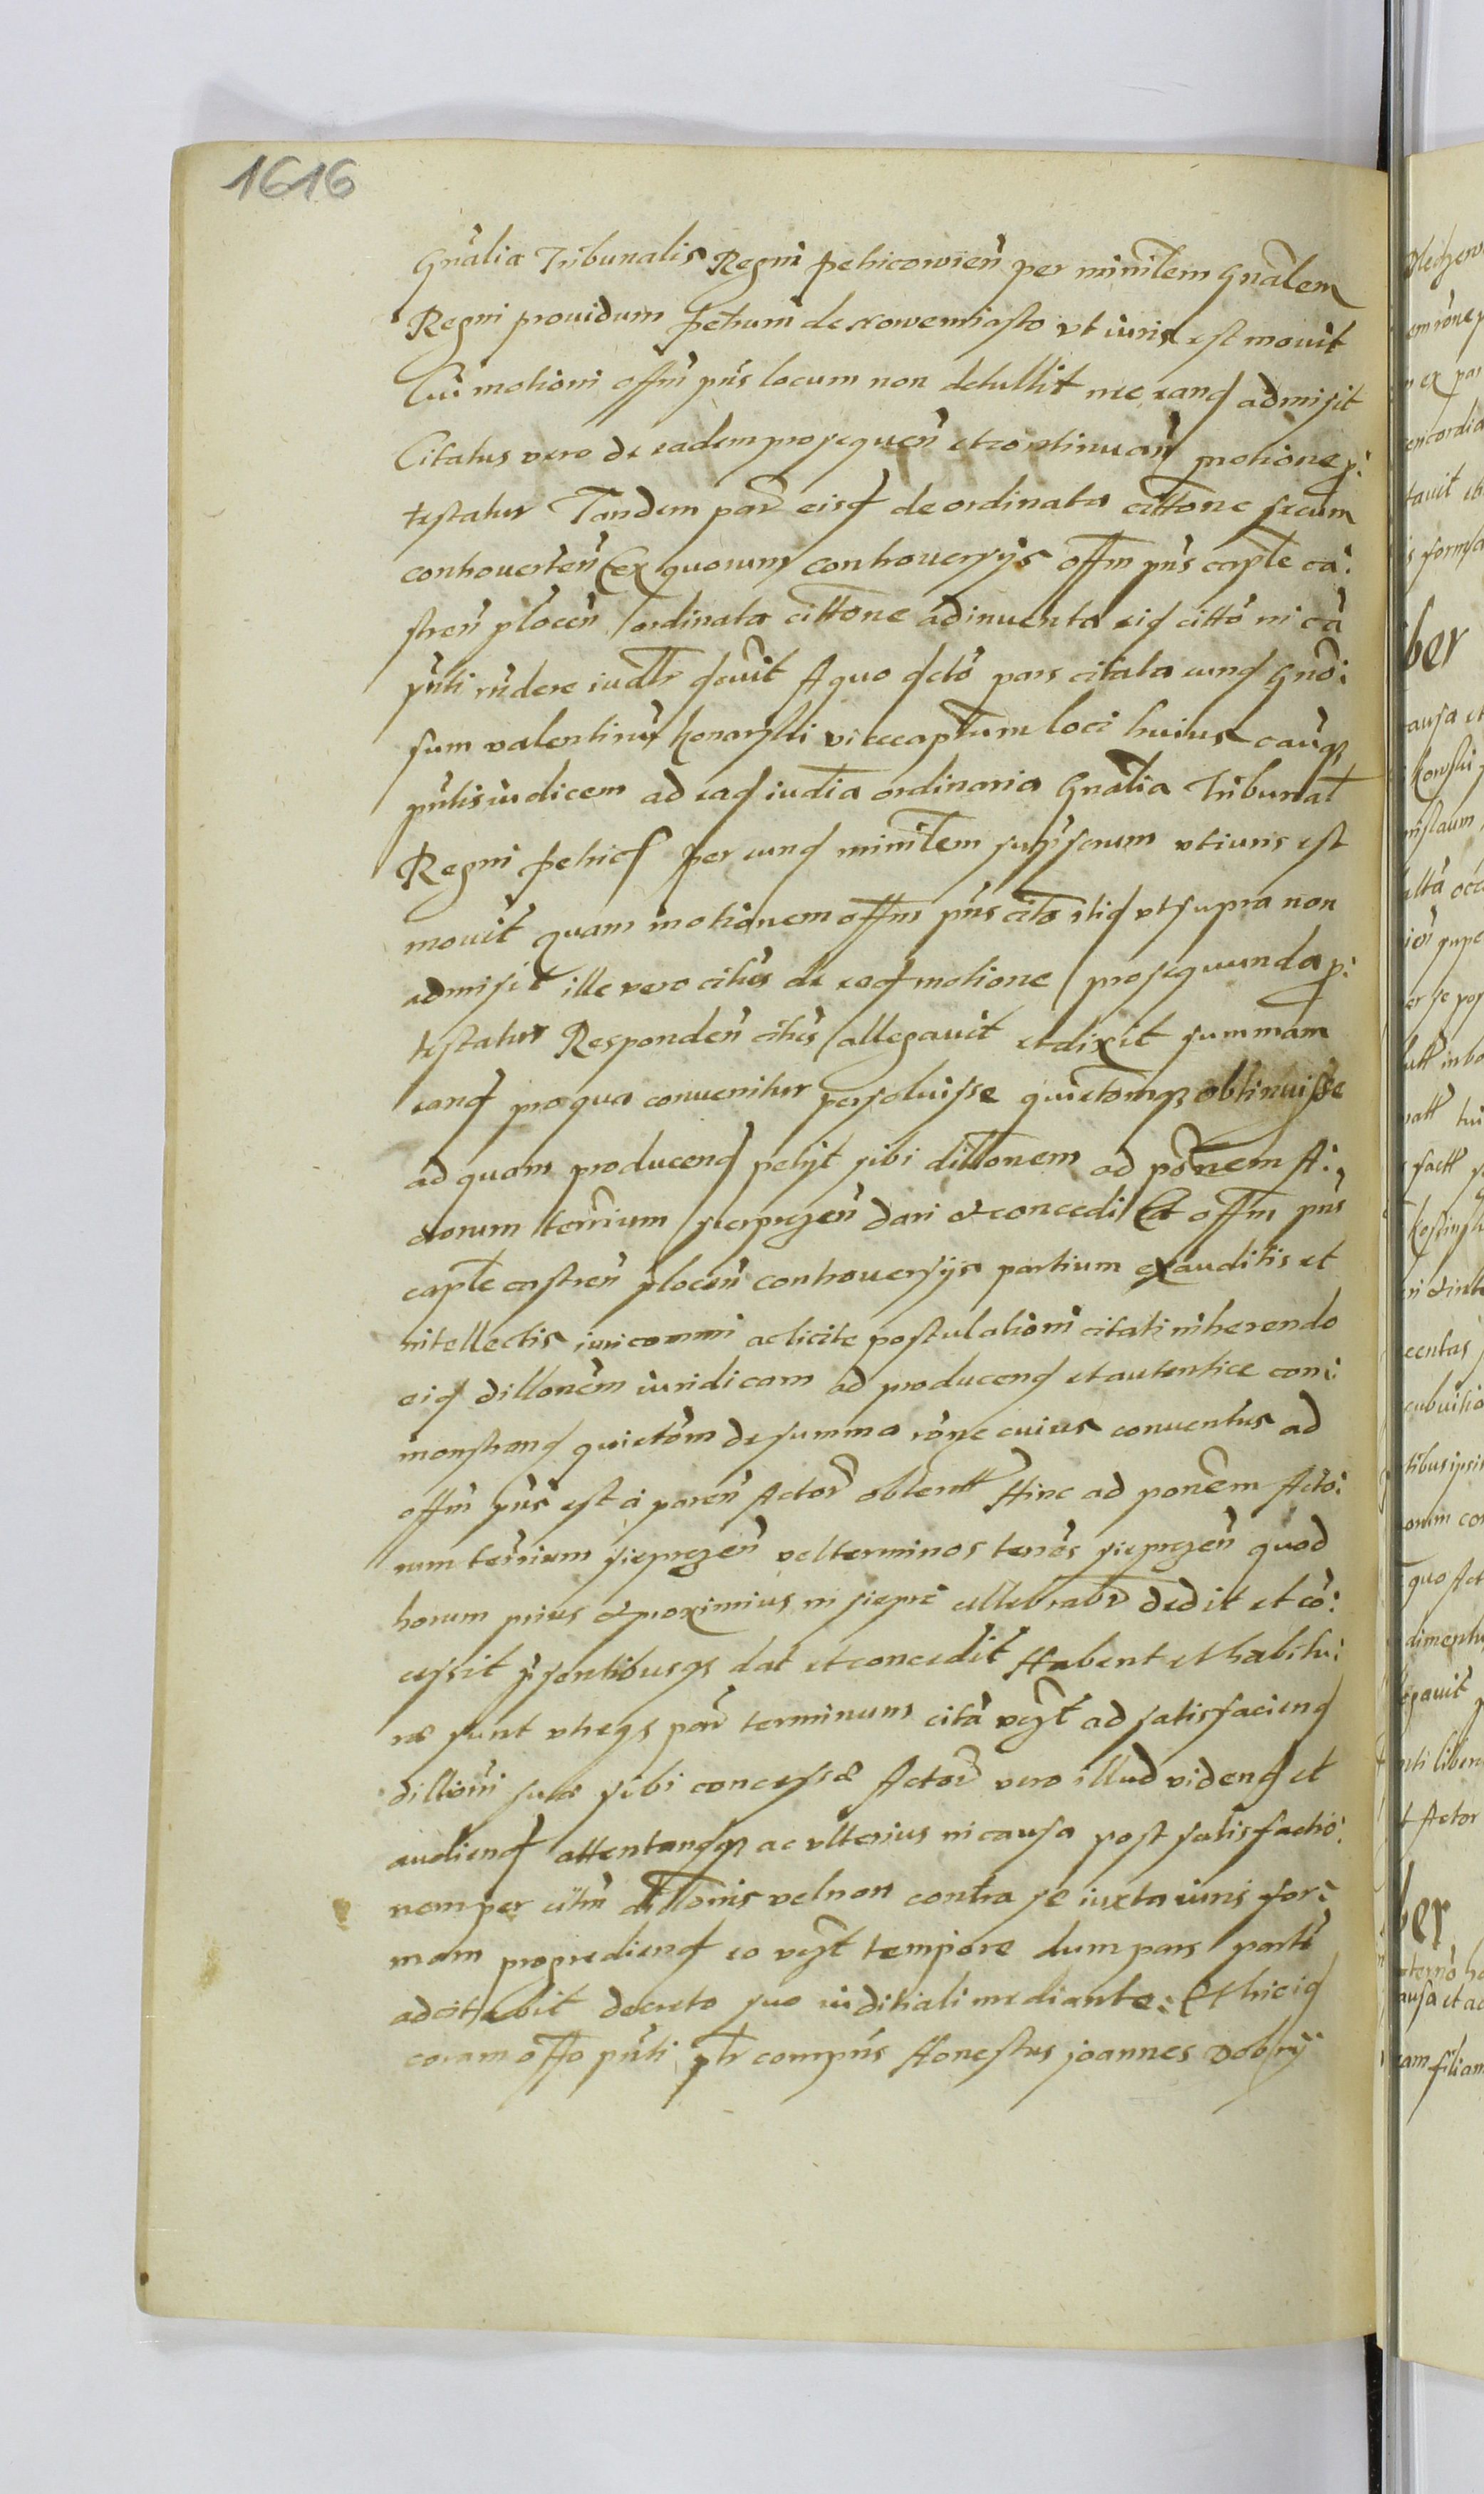 1616
Gnãlia Tribunalis Regni petricowien̄ per minrlem Gnãlem
Regni prouidum petrum de nowemiasto vt iuris est mouit
Cui motioni offm̄ pns̄ locum non detullit nec eand admisit
Citatus vero de eadem prosequen̄ et continuan̄ motione p:
testatur Tandem par̄ eisd de ordinata cittone secum
controuerten̄ ex quorum controuersijs offm̄ pns̄ caple ca:
stren̄ plocen̄ ordinata cittone adinuenta eid citto ni ca
pn̄ti rn̄dere iudtr̄ dcuit A quo dcto pars citata eund Gnõ:
sum valentinū konarski vicecaptum loci huius cauq
pn̄tis iudicem ad ead iudtia ordinaria Gnãlia Tribunal
Regni petric per eund minrlem supscrum vt iuris est
mouit quam motionem offm̄ pns̄ cito itid vt supra non
admisit ille vero citus de ead motione prosequunda p:
testatur Responden̄ citus allegauit et dixit summam
eand pro qua conuenitur persoluisse quietomq obtinuisse
ad quam producend petijt sibi dillonem ad ponem A:
ctorum terrium sierpzen̄ dari et concedi Et offm̄ pns̄
caple castren̄ plocen̄ controuersijs partium exauditis et
intellectis iuri commi ac licite postulationi citati inherendo
eid dillonem iuridicam ad producend et autentice com:
monstrand quietom de summa rone cuius conuentus ad
offm̄ pns̄ est a paren̄ Actor̄ obtent Hinc ad ponem Acto:
rum terrium sierpzen̄ vel terminos terros sierpzen̄ quod
horum prius et proximius in sierpc cellebrabr dedit et co:
cessit psentibusq dat et concedit Habent et habitu:
ræ sunt vtreqs par̄ terminum cita vczt ad satisfaciend
dillioni suæ sibi concessæ Actor̄ vero illud videnđ et
audienđ attentandq ac vlterius in causa post satisfactio:
nem per citm dillonis vel non contra se iuxta iuris for:
mam progrediend eo vczt tempore dum pars parte
adcitabit decreto suo iuditiali mediante. Et hic id
coram offo pn̄ti ptr compns̄ Honestus joannes dobrÿ